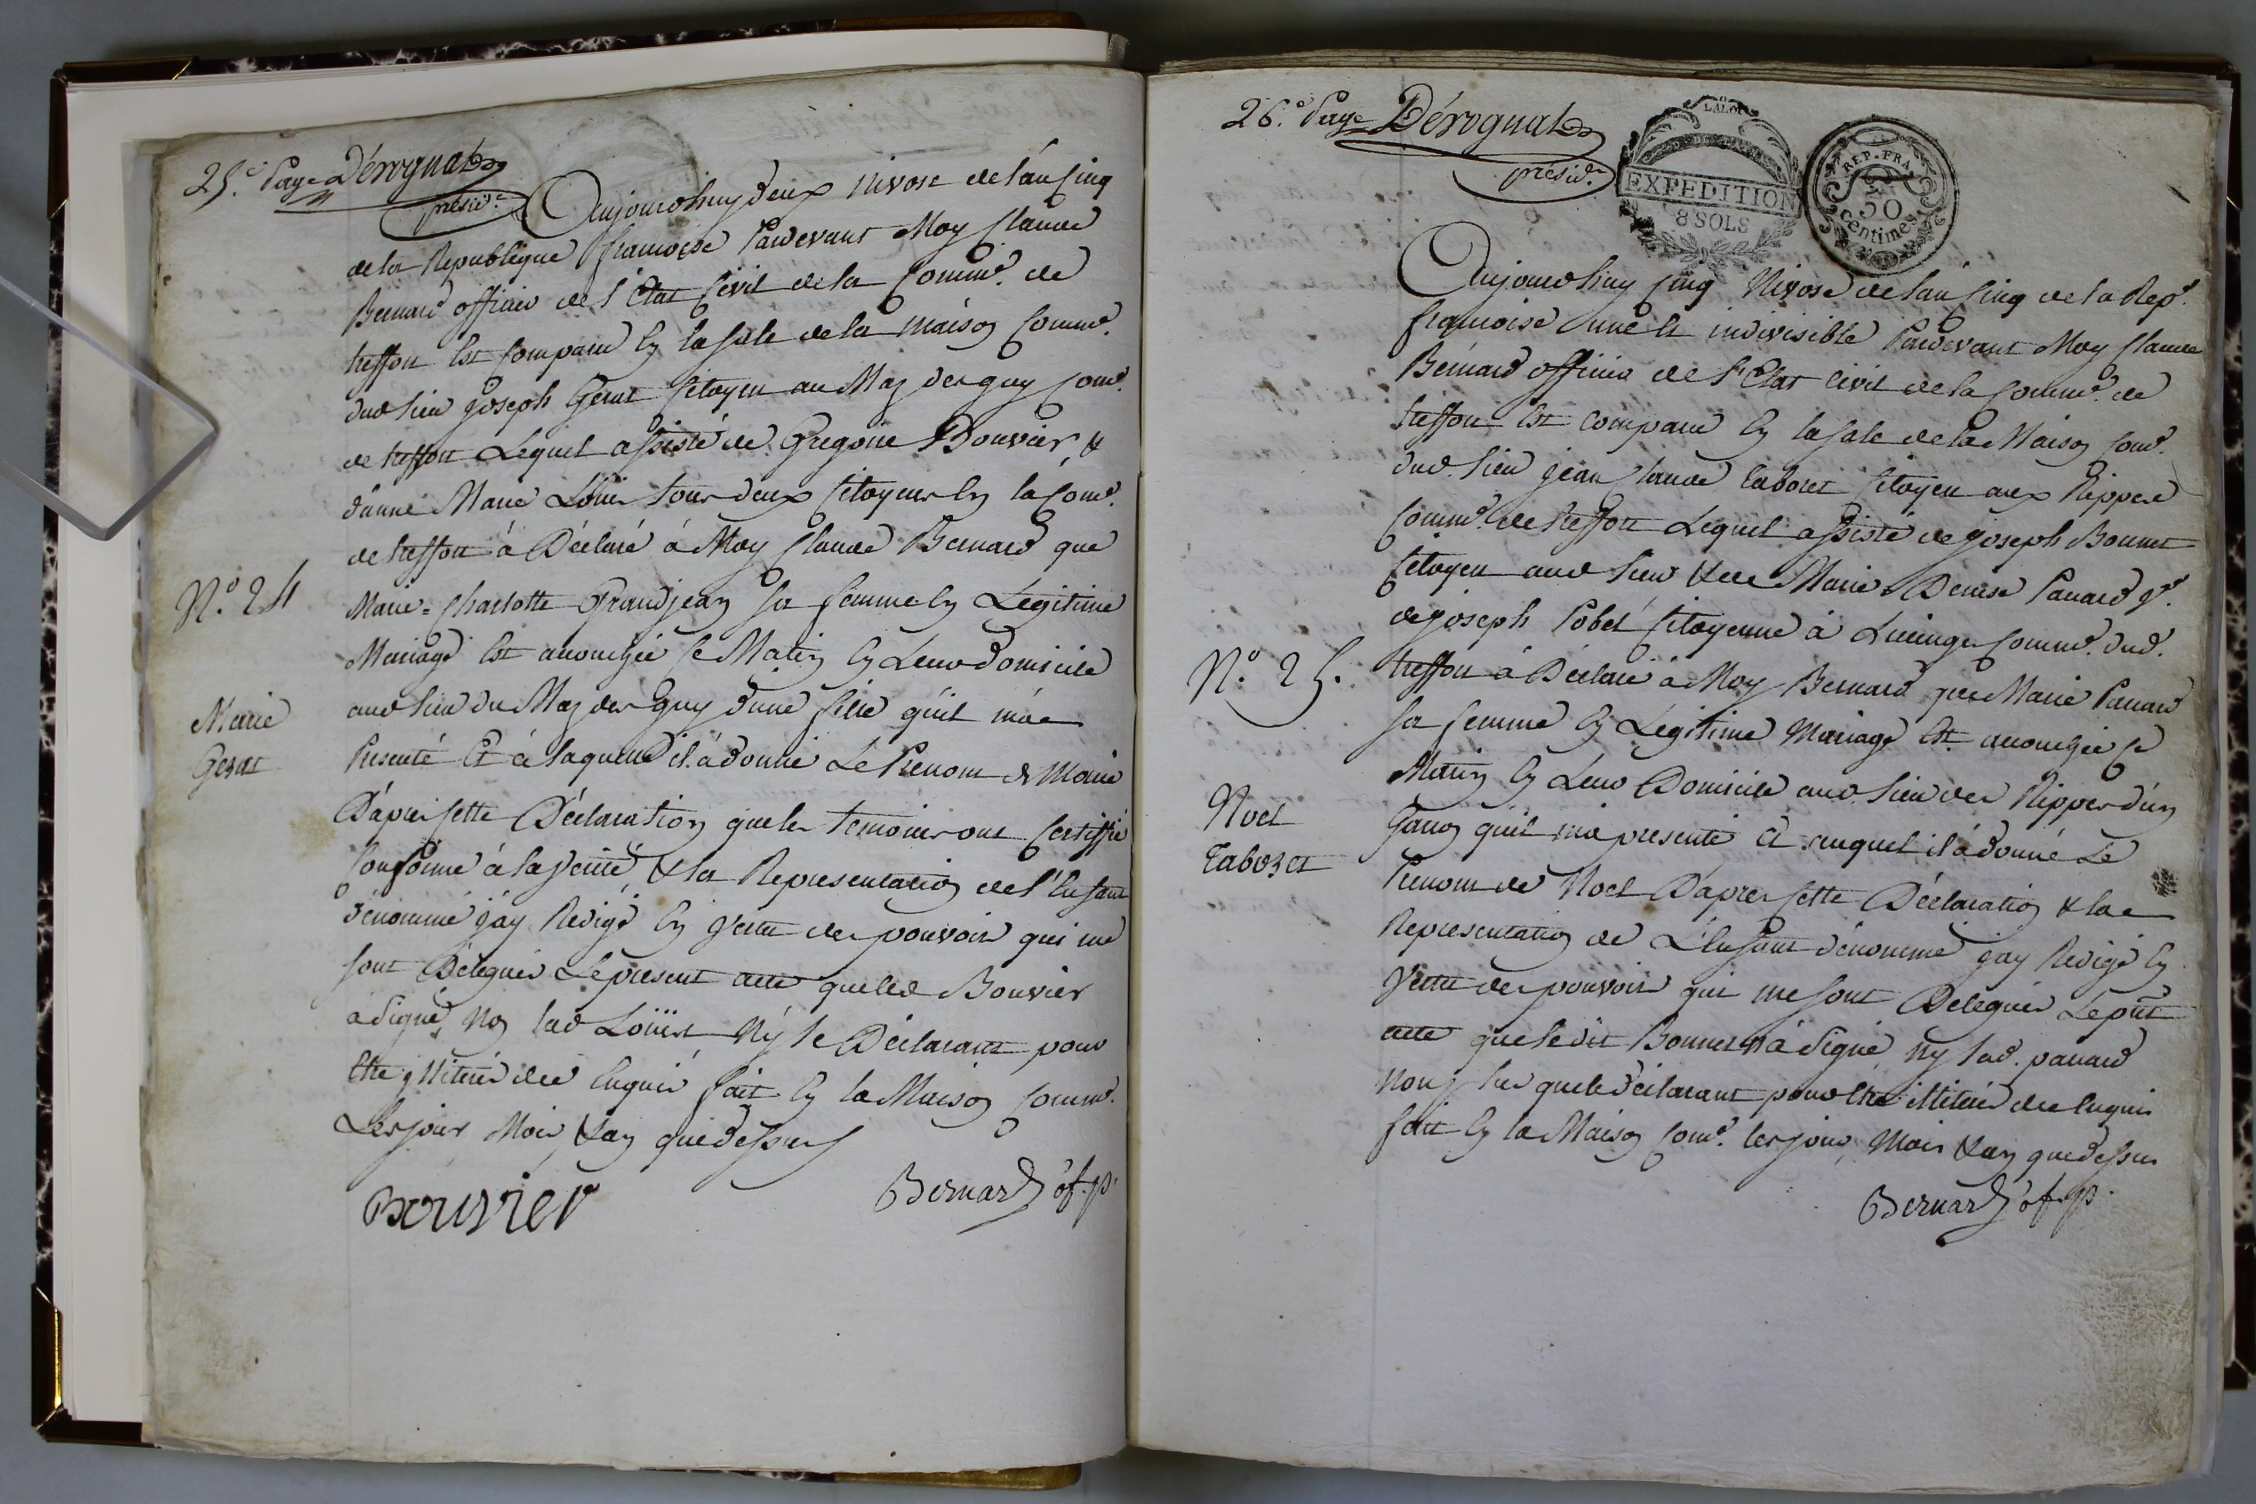 25.e Page Dérognat
présid.t
Aujourdhuy deux Nivose de l'an Cinq
de la Republique francoise Pardevant Moy Claude
Bernard officier de l'Etat Civil de la Comm.e de
treffort Est Comparu En la sale de la maison Comm.e
dud lieu joseph Gerat Citoyen au Maz des guy Com.e
de treffort Lequel assisté de Gregoire Bouvier, &
d'anne Marie Loüis tous deux Citoyens En la Com.e
de treffort à Déclaré à Moy Claude Bernard que
Marie=Charlotte Grandjean sa femme En Legitime
Mariage Est accouchée Ce Matin En Leur domicile
aud lieu du Maz des Guy d'une fille qu'il m'a
Presenté Et à laquelle il à donné Le Prenom de Marie
D'après Cette Déclaration que les temoins ont Certiffié
Conforme à la Verité & la Representation de l'Enfant
dénommé j'ay Redigé En Vertu des pouvoirs qui me
sont Délegués Le present acte que led Bouvier
à Signé Non lad Loüis Ny le Déclarant pour
Etre illiterés de ce Enquis fait En la Maison Comm.e
Les jour Mois & an que dessus
Bouvier Bernard of. p.
N.o 24
Marie
Gerat
26.e Page Dérognat
présid.t
LA LOI
EXPEDITION
8 SOLS
REP. FRA.
50
Centimes
Aujourdhuy Cinq Nivose de l'an Cinq de la Rep.e
francoise une Et indivisible Pardevant Moy Claude
Bernard officier de l'Etat Civil de la Comm.e de
treffort Est Comparu En la sale de la Maison Com.e
dud. lieu jean Claude Taboret Citoyen aux Rippes
Comm.e de treffort Lequel assisté de joseph Bonnet
Citoyen aud lieu & de Marie Denise Panard
de joseph Pobel Citoyenne à Lucinge Comm.e dud.
treffort à Déclaré à Moy Bernard que Marie Panard
sa femme En Legitime Mariage Est accouchée Ce
Matin En Leur Domicile aud. lieu des Rippes d'un
Garçon qu'il m'a presenté Et auquel il à donné Le
Prenom de Noel D'après Cette Déclaration & la
Representation de L'Enfant dénommé j'ay Redigé En
Vertu des pouvoirs qui me sont Delegués Le pnt
acte que ledit Bonnet n'à Signé Ny lad. panard
Non plus que le déclarant pour Etre illiterés de ce Enquis
fait En la Maison Com.e les jour, Mois & an que dessus
Bernard of. p.
N.o 25.
Noel
Taboret